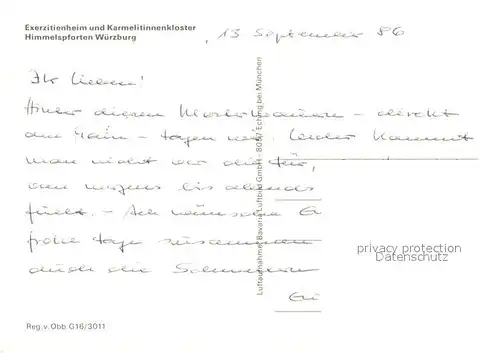 Exerzitienheim und Karmelitinnenkloster
Himmelspforten Würzburg
13 September 86
Ihr Lieben!
Hinter diesen Klostermauern – direkt
am Main – tagen wir. Leider kommt
man nicht vor die Tür,
von morgens bis abends
frohe Tage zusammen
durch die
Luftaufnahme: Bavaria Luftbild GmbH · 8057 Eching bei München
privacy protection
Datenschutz
Reg. v. Obb. G16/3011